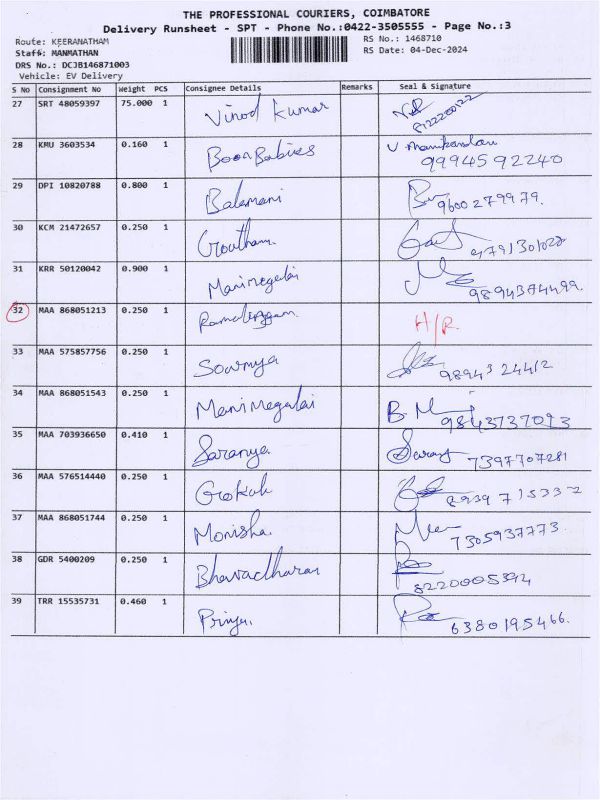 THE PROFESSIONAL COURIERS, COIMBATORE
Delivery Runsheet - SPT - Phone No.:0422-3505555 - Page No.:3
Route: KEERANATHAM
RS No.: 1468710
Staff: MANMATHAN
RS Date: 04-Dec-2024
DRS No.: DCJB146871003
Vehicle: EV Delivery
S No Consignment No Weight PCS Consignee Details Remarks Seal & Signature
27 SRT 48059397 75.000 1 Vinod Kumar 8122200122
28 KMU 3603534 0.160 1 BoonBabies V Manikandan
9994592240
29 DPI 10820788 0.800 1 Balamani 9600279979.
30 KCM 21472657 0.250 1 Goutham
31 KRR 50120042 0.900 1 Manimegalai 9894374499.
32 MAA 868051213 0.250 1 H/R
33 MAA 575857756 0.250 1 Sowmya 9894324412
34 MAA 868051543 0.250 1 Manimegalai 9843737093
35 MAA 703936650 0.410 1 Saranya Saray 7397707281
36 MAA 576514440 0.250 1 Gokul 8939715332
37 MAA 868051744 0.250 1 Monisha 7305937773.
38 GDR 5400209 0.250 1 Bhavadharan 8220005394
39 TRR 15535731 0.460 1 Priya. 6380195466.